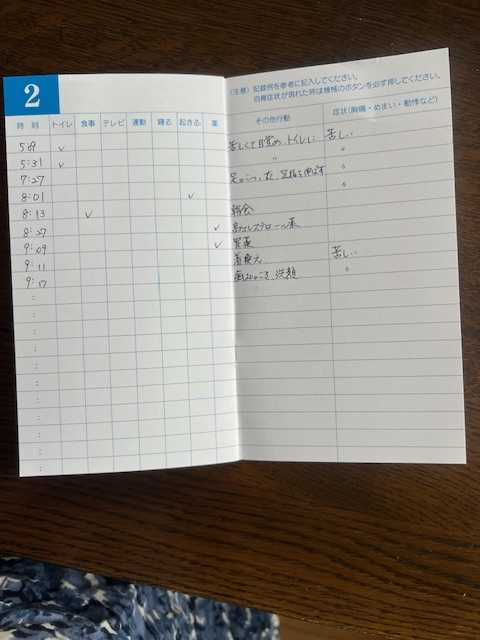 2
(注意) 記録例を参考に記入してください。
自覚症状が現れた時は機械のボタンを必ず押してください。
時 刻 トイレ 食事 テレビ 運動 寝る 起きる 薬 その他行動 症状(胸痛・めまい・動悸など)
5:09 ✓ 苦しくて目覚め、トイレに 苦しい
5:31 ✓ 〃 〃
7:27 足がつった、足指を伸ばす 〃
8:01 ✓ 〃
8:13 ✓ 朝食
8:27 ✓ コレステロール薬
9:09 ✓ 胃薬
9:11 着換え 苦しい
9:17 歯みがき、洗顔 〃